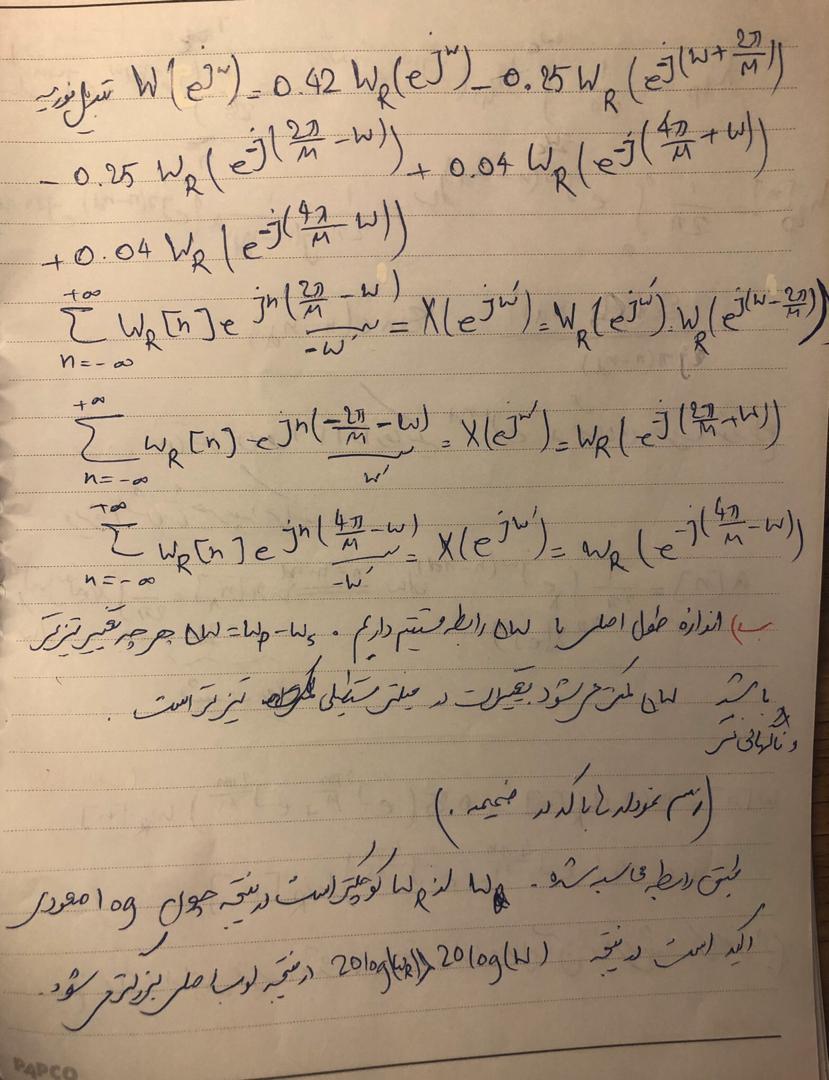 تبدیل فوریه W(e^{jω}) = 0.42 W_R(e^{jω}) - 0.25 W_R(e^{-j(ω + 2π/M)})
- 0.25 W_R(e^{-j(2π/M - ω)}) + 0.04 W_R(e^{-j(4π/M + ω)})
+ 0.04 W_R(e^{-j(4π/M - ω)})
∑_{n=-∞}^{+∞} W_R[n] e^{jn(2π/M - ω)} = X(e^{jω'}) = W_R(e^{jω'}). W_R(e^{j(ω - 2π/M)})
-ω'
∑_{n=-∞}^{+∞} W_R[n] · e^{jn(-2π/M - ω)} = X(e^{jω'}) = W_R(e^{-j(2π/M + ω)})
ω'
∑_{n=-∞}^{+∞} W_R[n] e^{jn(4π/M - ω)} = X(e^{jω'}) = W_R(e^{-j(4π/M - ω)})
-ω'
ب) اندازه طول اصلی با Δω رابطه مستقیم داریم. Δω = ω_p - ω_s هر چه تغییر تیزتر
باشد Δω کمتر می‌شود تغییرات در فیلتر مستطیلی تیزتر است.
و ناگهانی تر
(رسم نمودارها با کد در ضمیمه.)
طبق رابطه محاسبه شده. W از W_R کوچکتر است در نتیجه چون log صعودی
اکید است در نتیجه 20log(W_R) > 20log(W) در نتیجه لوب اصلی بزرگتر می شود.
PAPCO